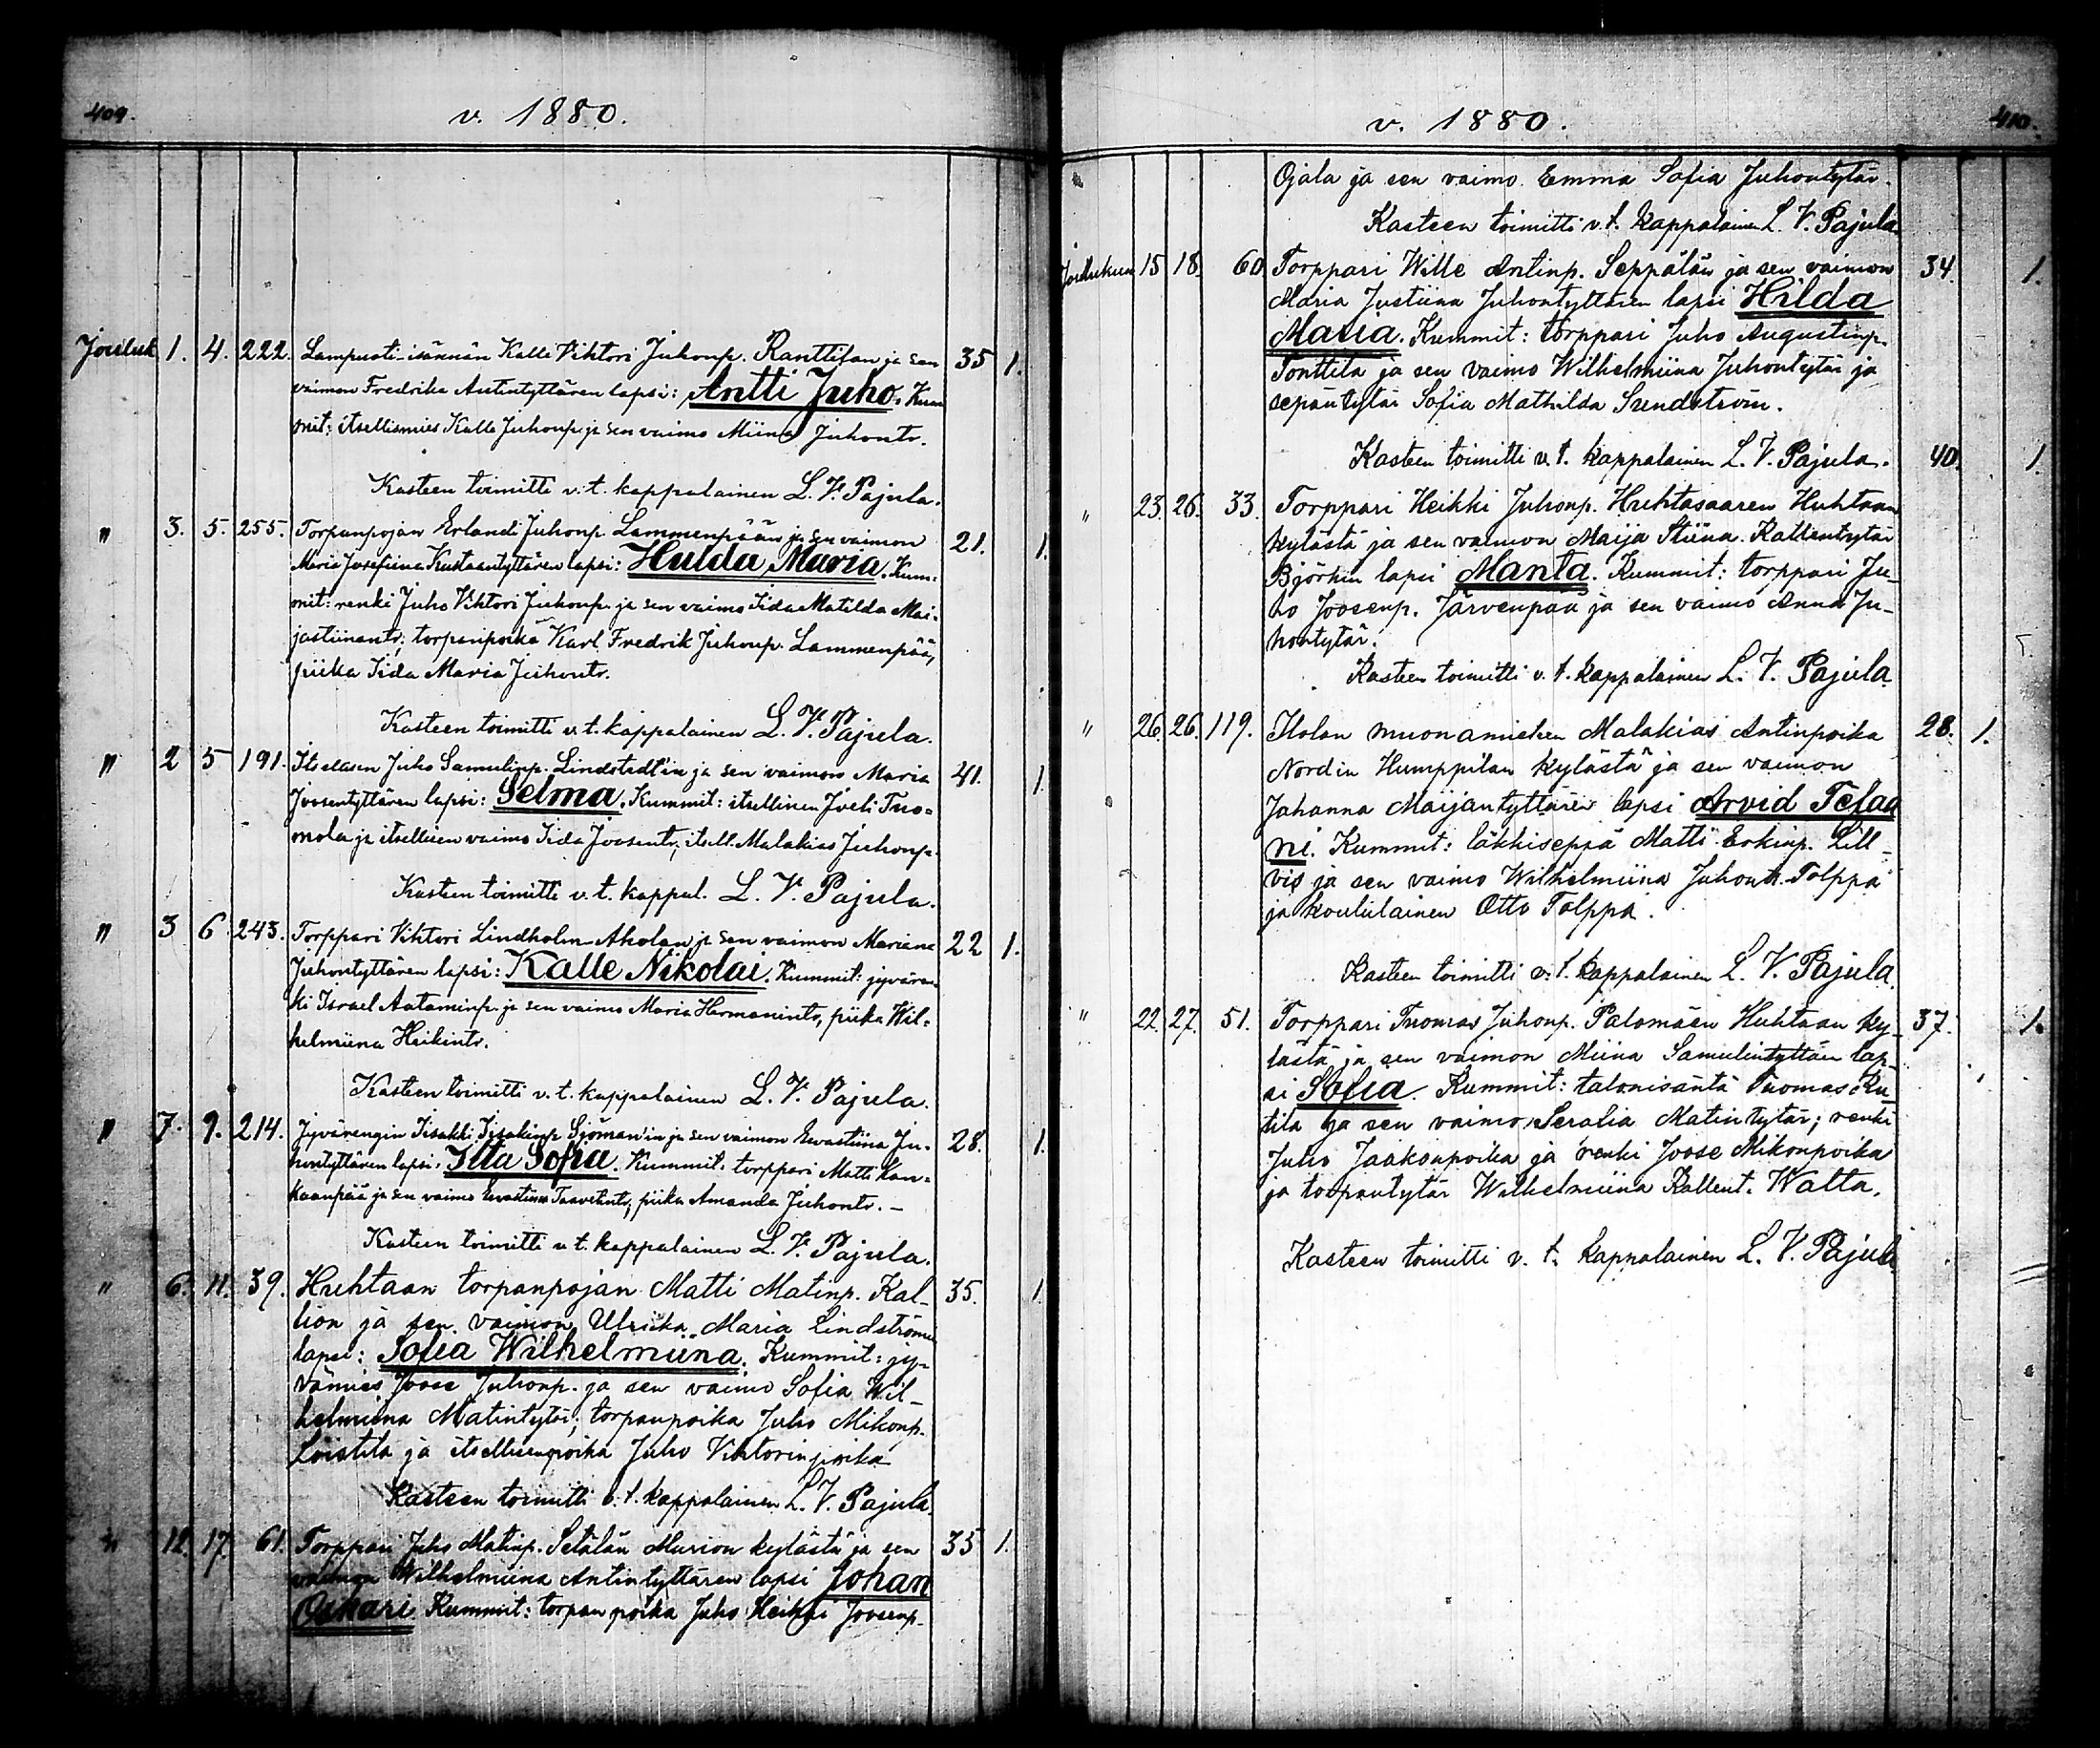 409.
v. 1880.
Jouluk. 1. 4. 222. Lampuoti-isännän Kalle Vihtori Juhonp. Ranttilan ja sen 35 1.
vaimon Fredrika Antintyttären lapsi: Antti Juho. Kum
mit: itsellismies Kalle Juhonp. ja sen vaimo Miina Juhontr.
Kasteen toimitti v. t. kappalainen L. V. Pajula.
" 3. 5. 255. Torpanpojan Erlandi Juhonp. Lammenpään ja sen vaimon 21. 1.
Maria Josefiina Kustaantyttären lapsi: Hulda Maria. Kum-
mit: renki Juho Vihtori Juhonp. ja sen vaimo Iida Matilda Mai-
jastiinantr; torpanpoika Karl Fredrik Juhonp. Lammenpää,
piika Iida Maria Juhontr.
Kasteen toimitti v. t. kappalainen L. V. Pajula.
" 2 5 191. Itsellisen Juho Samulinp. Lindstedt'in ja sen vaimon Maria 41. 1.
Joosentyttären lapsi: Selma. Kummit: itsellinen Joeli Tuo-
mola ja itsellisen vaimo Iida Joosentr; itsell. Malakias Juhonp.
Kasteen toimitti v. t. kappal. L. V. Pajula.
" 3 6 243. Torppari Vihtori Lindholm-Aholan ja sen vaimon Mariana 22 1.
Juhontyttären lapsi: Kalle Nikolai. Kummit: jyvären-
ki Israel Aataminp. ja sen vaimo Maria Hermanintr, piika Wil-
helmiina Heikintr.
Kasteen toimitti v. t. kappalainen L. V. Pajula.
" 7. 9. 214. Jyvärengin Iisakki Iisakinp. Sjöman'in ja sen vaimon Eevastiina Ju- 28. 1.
hontyttären lapsi: Iita Sofia. Kummit: torppari Matti Kan-
kaanpää ja sen vaimo Eevastiina Taavetintr, piika Amanda Juhontr. –
Kasteen toimitti v. t. kappalainen L. V. Pajula.
" 6. 11. 39. Huhtaan torpanpojan Matti Matinp. Kal- 35. 1.
lion ja sen vaimon Ulriika Maria Lindströmin
lapsi: Sofia Wilhelmiina. Kummit: jy-
vämies Joose Juhonp. ja sen vaimo Sofia Wil-
helmiina Matintytär; torpanpoika Juho Mikonp.
Loistila ja itsellisenpoika Juho Vihtorinpoika
Kasteen toimitti v. t. kappalainen L. V. Pajula.
" 12. 17. 61. Torppari Juho Matinp. Setälän Murion kylästä ja sen 35 1.
vaimon Wilhelmiina Antintyttären lapsi Johan
Oskari Kummit: torpan poika Juho Heikki Joosenp.
410.
v. 1880.
Ojala ja sen vaimo Emma Sofia Juhontytär.
Kasteen toimitti v. t. kappalainen L. V. Pajula.
Joulukuu 15 18. 60 Torppari Wille Antinp. Seppälän ja sen vaimon 34. 1.
Maria Justiina Juhontyttären lapsi Hilda
Maria. Kummit: torppari Juho Augustinp.
Tonttila ja sen vaimo Wilhelmiina Juhontytär ja
sepäntytär Sofia Mathilda Sundström.
Kasteen toimitti v. t. kappalainen L. V. Pajula. 40. 1.
" 23. 26. 33. Torppari Heikki Juhonp. Huhtasaaren Huhtaan
kylästä ja sen vaimon Maija Stiina Kallentytär
Björkin lapsi Manta. Kummit: torppari Ju-
ho Joosenp. Järvenpää ja sen vaimo Anna Ju-
hontytär.
Kasteen toimitti v. t. kappalainen L. V. Pajula
" 26. 26. 119. Ilolan muonamiehen Malakias Antinpoika 28. 1.
Nordin Humppilan kylästä ja sen vaimon
Johanna Maijantyttären lapsi Arvid Tefaa
ni. Kummit: läkkiseppä Matti Erkinp. Lill-
vis ja sen vaimo Wilhelmiina Juhontr. Tolppa
ja koululainen Otto Tolppa.
Kasteen toimitti v. t. kappalainen L. V. Pajula.
" 22. 27. 51. Torppari Tuomas Juhonp. Palomäen Huhtaan ky- 37. 1.
lästä ja sen vaimon Miina Samulintyttären lap-
si Sofia. Kummit: talonisäntä Tuomas Ru-
tila ja sen vaimo Seralia Matintytär; renki
Juho Jaakonpoika ja renki Joose Mikonpoika
ja torpantytär Wilhelmiina Kallent. Walta.
Kasteen toimitti v. t. kappalainen L. V. Pajula.